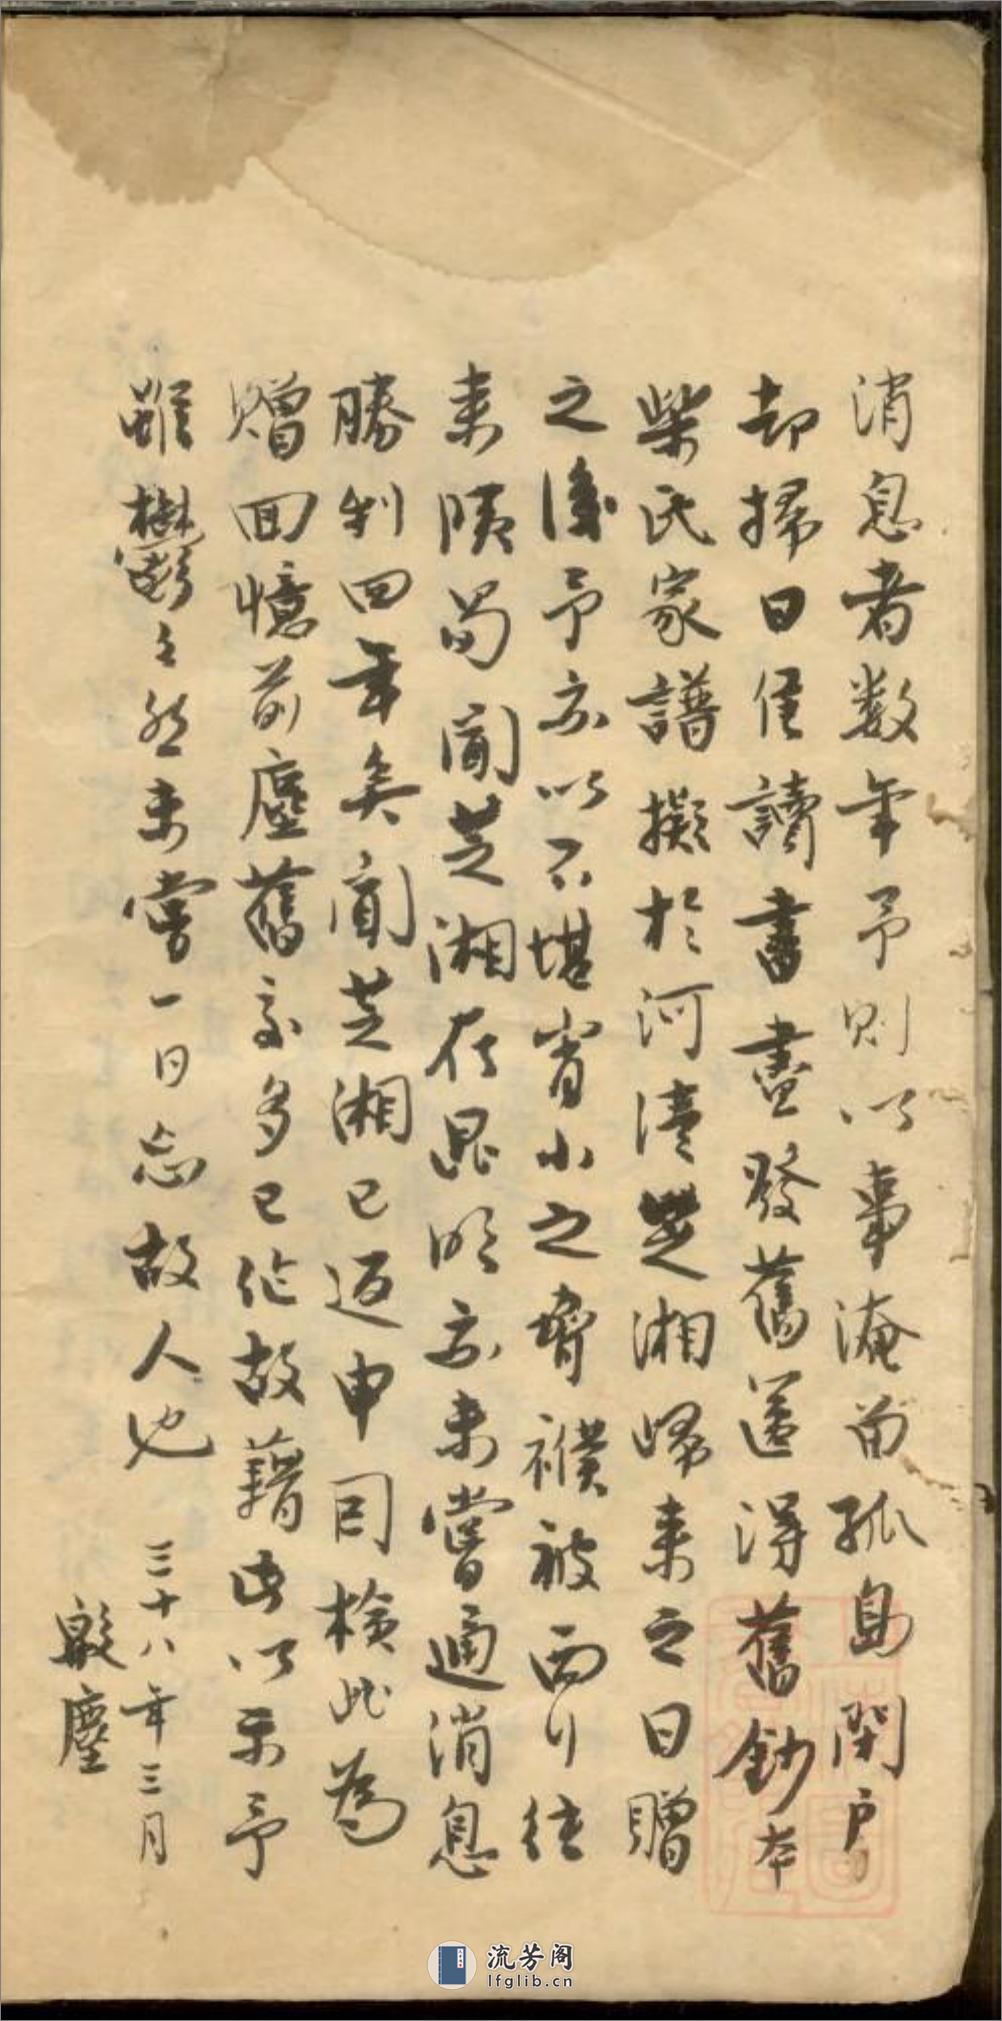 消息者数年予则以事淹留孤島閉户
却掃日惟讀書盡發舊篋得舊鈔本
柴氏家譜擬於河清芝湘歸来之日贈
之後予亦以不堪宵小之脅襆被西行往
来陝蜀聞芝湘在昆明亦未嘗通消息
勝利四年矣聞芝湘已返申因檢此為
贈回憶前塵舊交多已作故藉此以示予
雖鬱鬱之然未嘗一日忘故人也 三十八年三月
殿塵
流芳阁
lfglib.cn